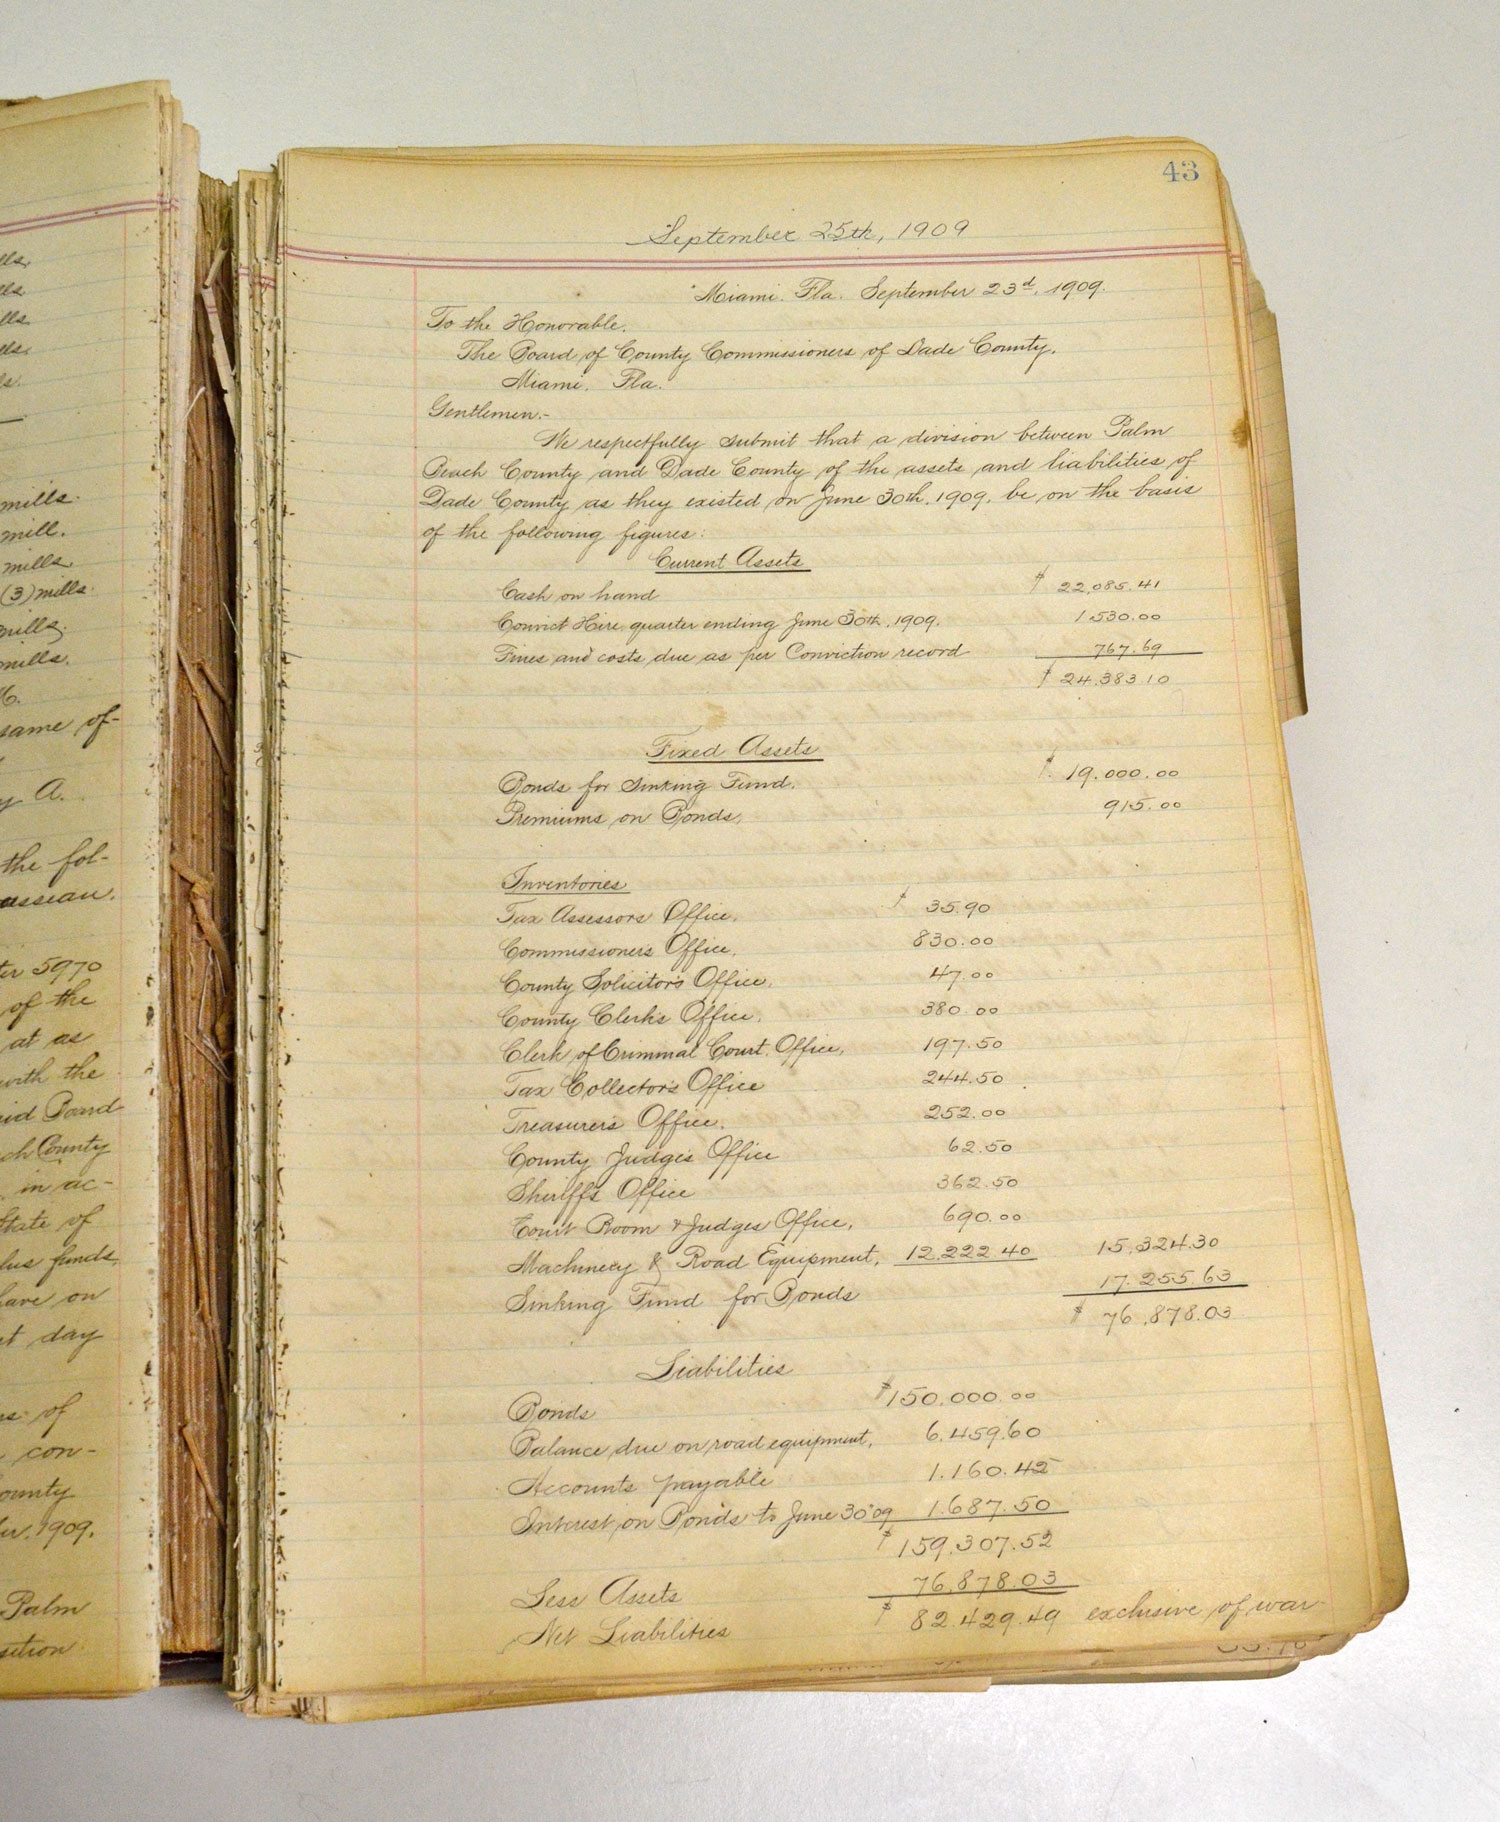 lls.
lls
lls
lls.
ls.
mills.
mill.
mills
(3) mills.
mills.
mills.
same of-
y A.
the fol-
asseau.
ter 5970
of the
at as
with the
aid Board
ch County
in ac-
State of
lus funds
have on
st day
of
con-
ounty
1909.
Palm
sition
43
September 25th, 1909
"Miami. Fla. September 23d. 1909.
To the Honorable.
The Board of County Commissioners of Dade County.
Miami. Fla.
Gentlemen.-
We respectfully submit that a division between Palm
Beach County and Dade County of the assets and liabilities of
Dade County as they existed on June 30th. 1909. be on the basis
of the following figures:
Current Assets
Cash on hand $ 22,085.41
Convict Hire quarter ending June 30th. 1909. 1530.00
Fines and costs due as per Conviction record 767.69
$ 24.383.10
Fixed Assets
Bonds for Sinking Fund. $ 19.000.00
Premiums on Bonds. 915.00
Inventories
Tax Assessors Office. $ 35.90
Commissioner's Office. 830.00
County Solicitor's Office. 47.00
County Clerk's Office. 380.00
Clerk of Criminal Court Office. 197.50
Tax Collector's Office 244.50
Treasurer's Office. 252.00
County Judge's Office 62.50
Sheriff's Office 362.50
Court Room & Judges Office. 690.00
Machinery & Road Equipment. 12.222.40 15.324.30
Sinking Fund for Bonds 17.255.63
$ 76.878.03
Liabilities
Bonds $150.000.00
Balance due on road equipment. 6.459.60
Accounts payable 1.160.42
Interest on Bonds to June 30"09 1.687.50
$ 159.307.52
Less Assets 76.878.03
Net Liabilities $ 82.429.49 exclusive of war-